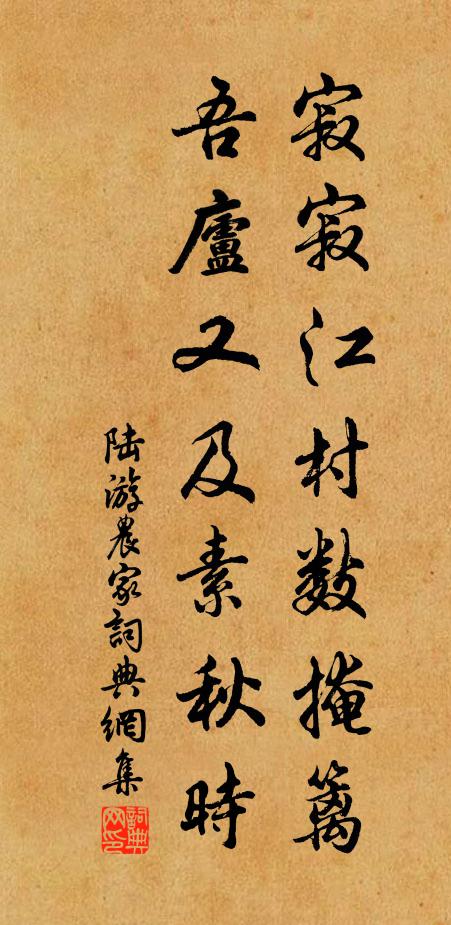 寂寂江村數掩篱
吾廬又及素秋時
陆游農家詞典網集
詞典網印